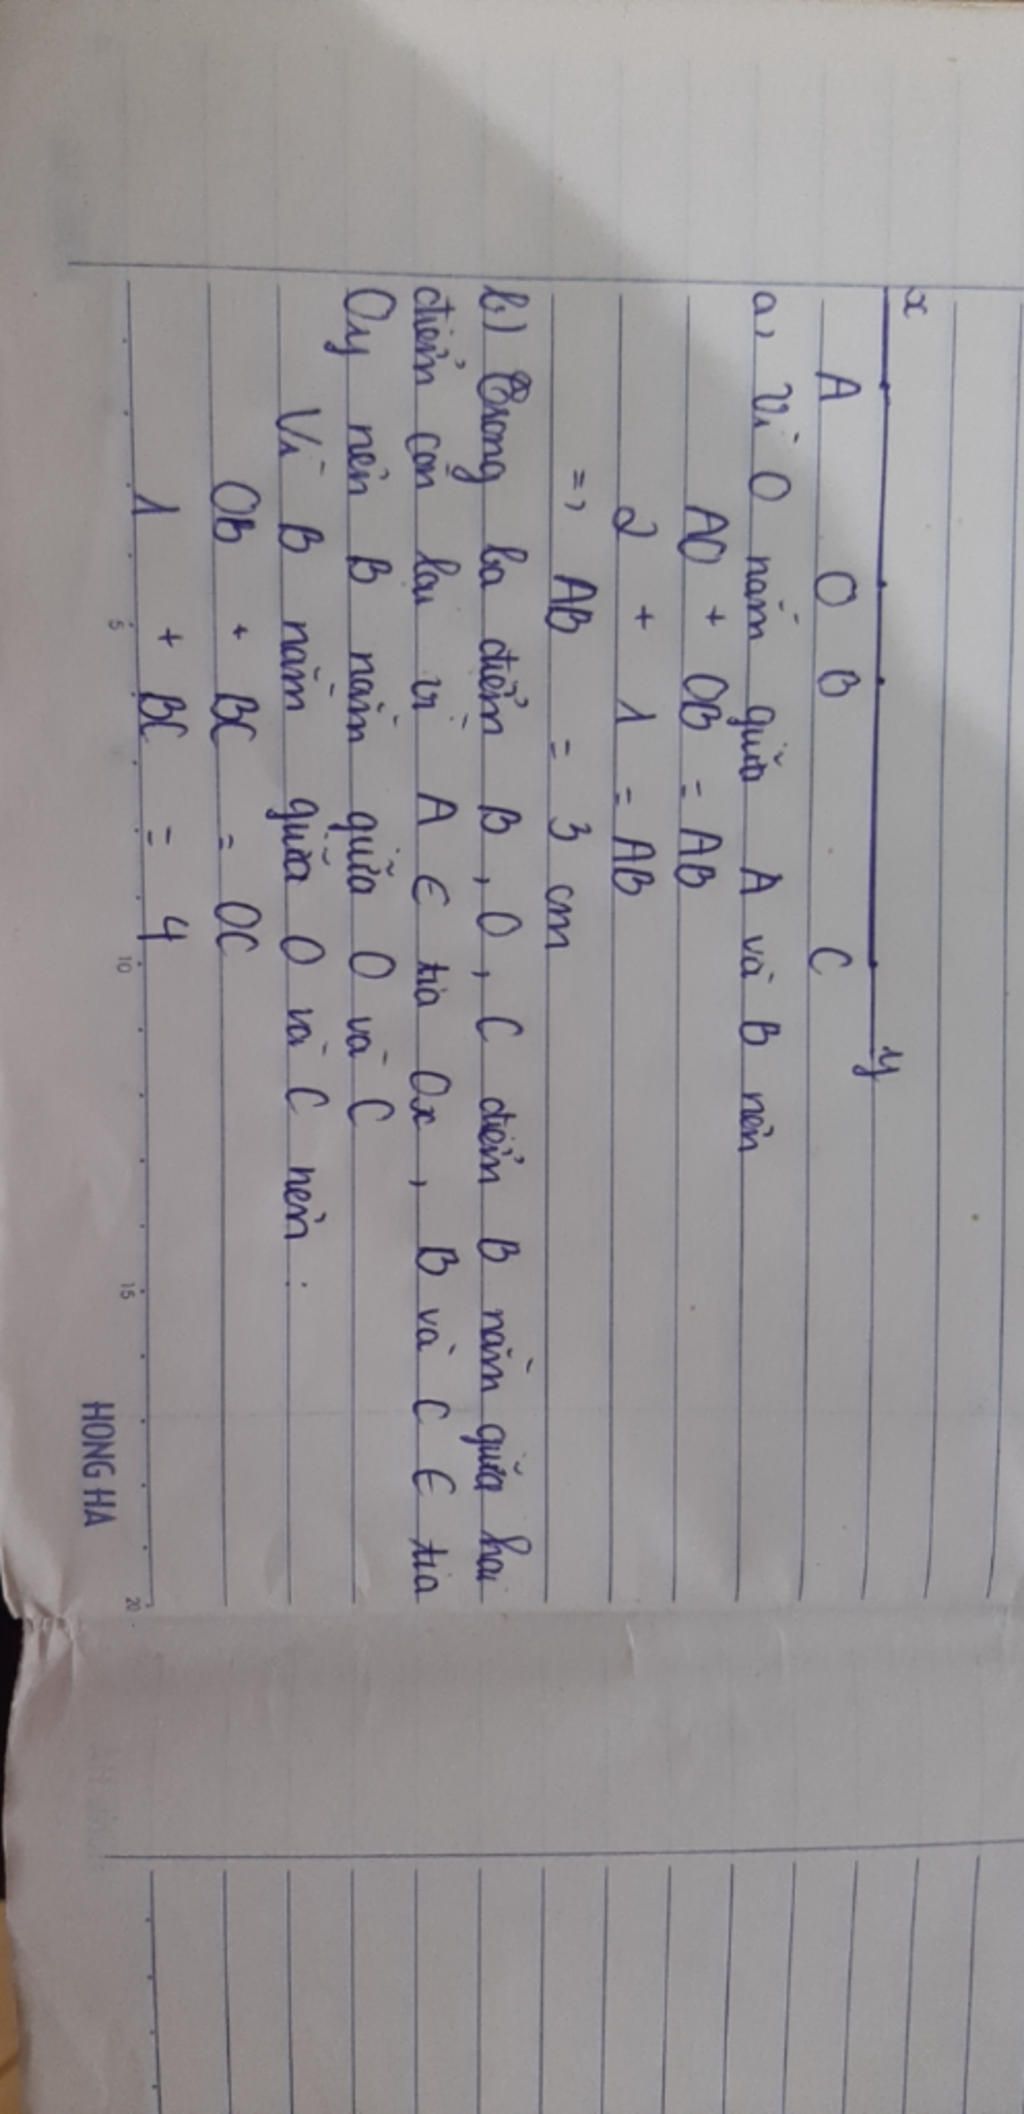 x y
A O B C
a, Vì O nằm giữa A và B nên
AO + OB = AB
2 + 1 = AB
=, AB = 3 cm
b) Trong ba điểm B, O, C điểm B nằm giữa hai
điểm còn lại vì A ∈ tia Ox, B và C ∈ tia
Oy nên B nằm giữa O và C
Vì B nằm giữa O và C nên:
OB + BC = OC
1 + BC = 4
5 10 15 20
HONG HA